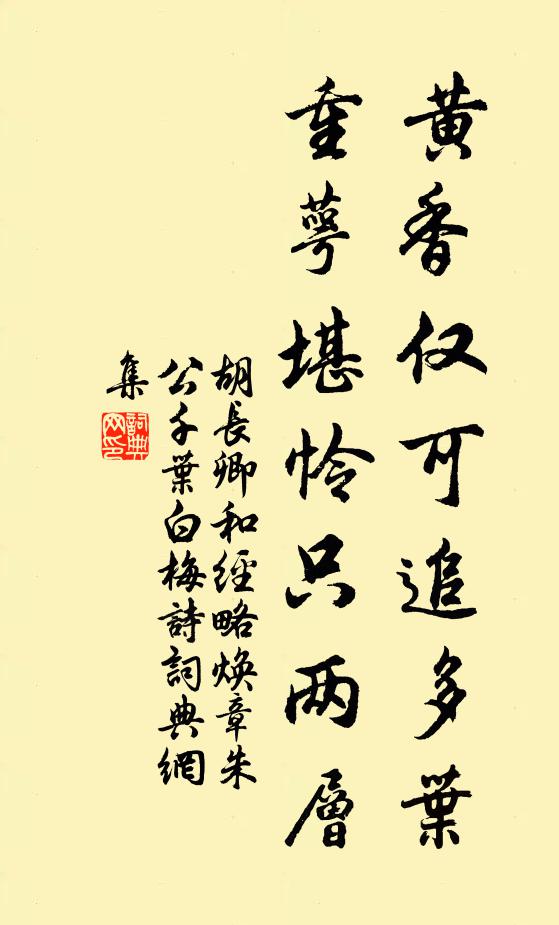 黄香仅可追多葉
重萼堪怜只两層
胡長卿和經略焕章朱
公千葉白梅詩詞典網
集
詞典
网印